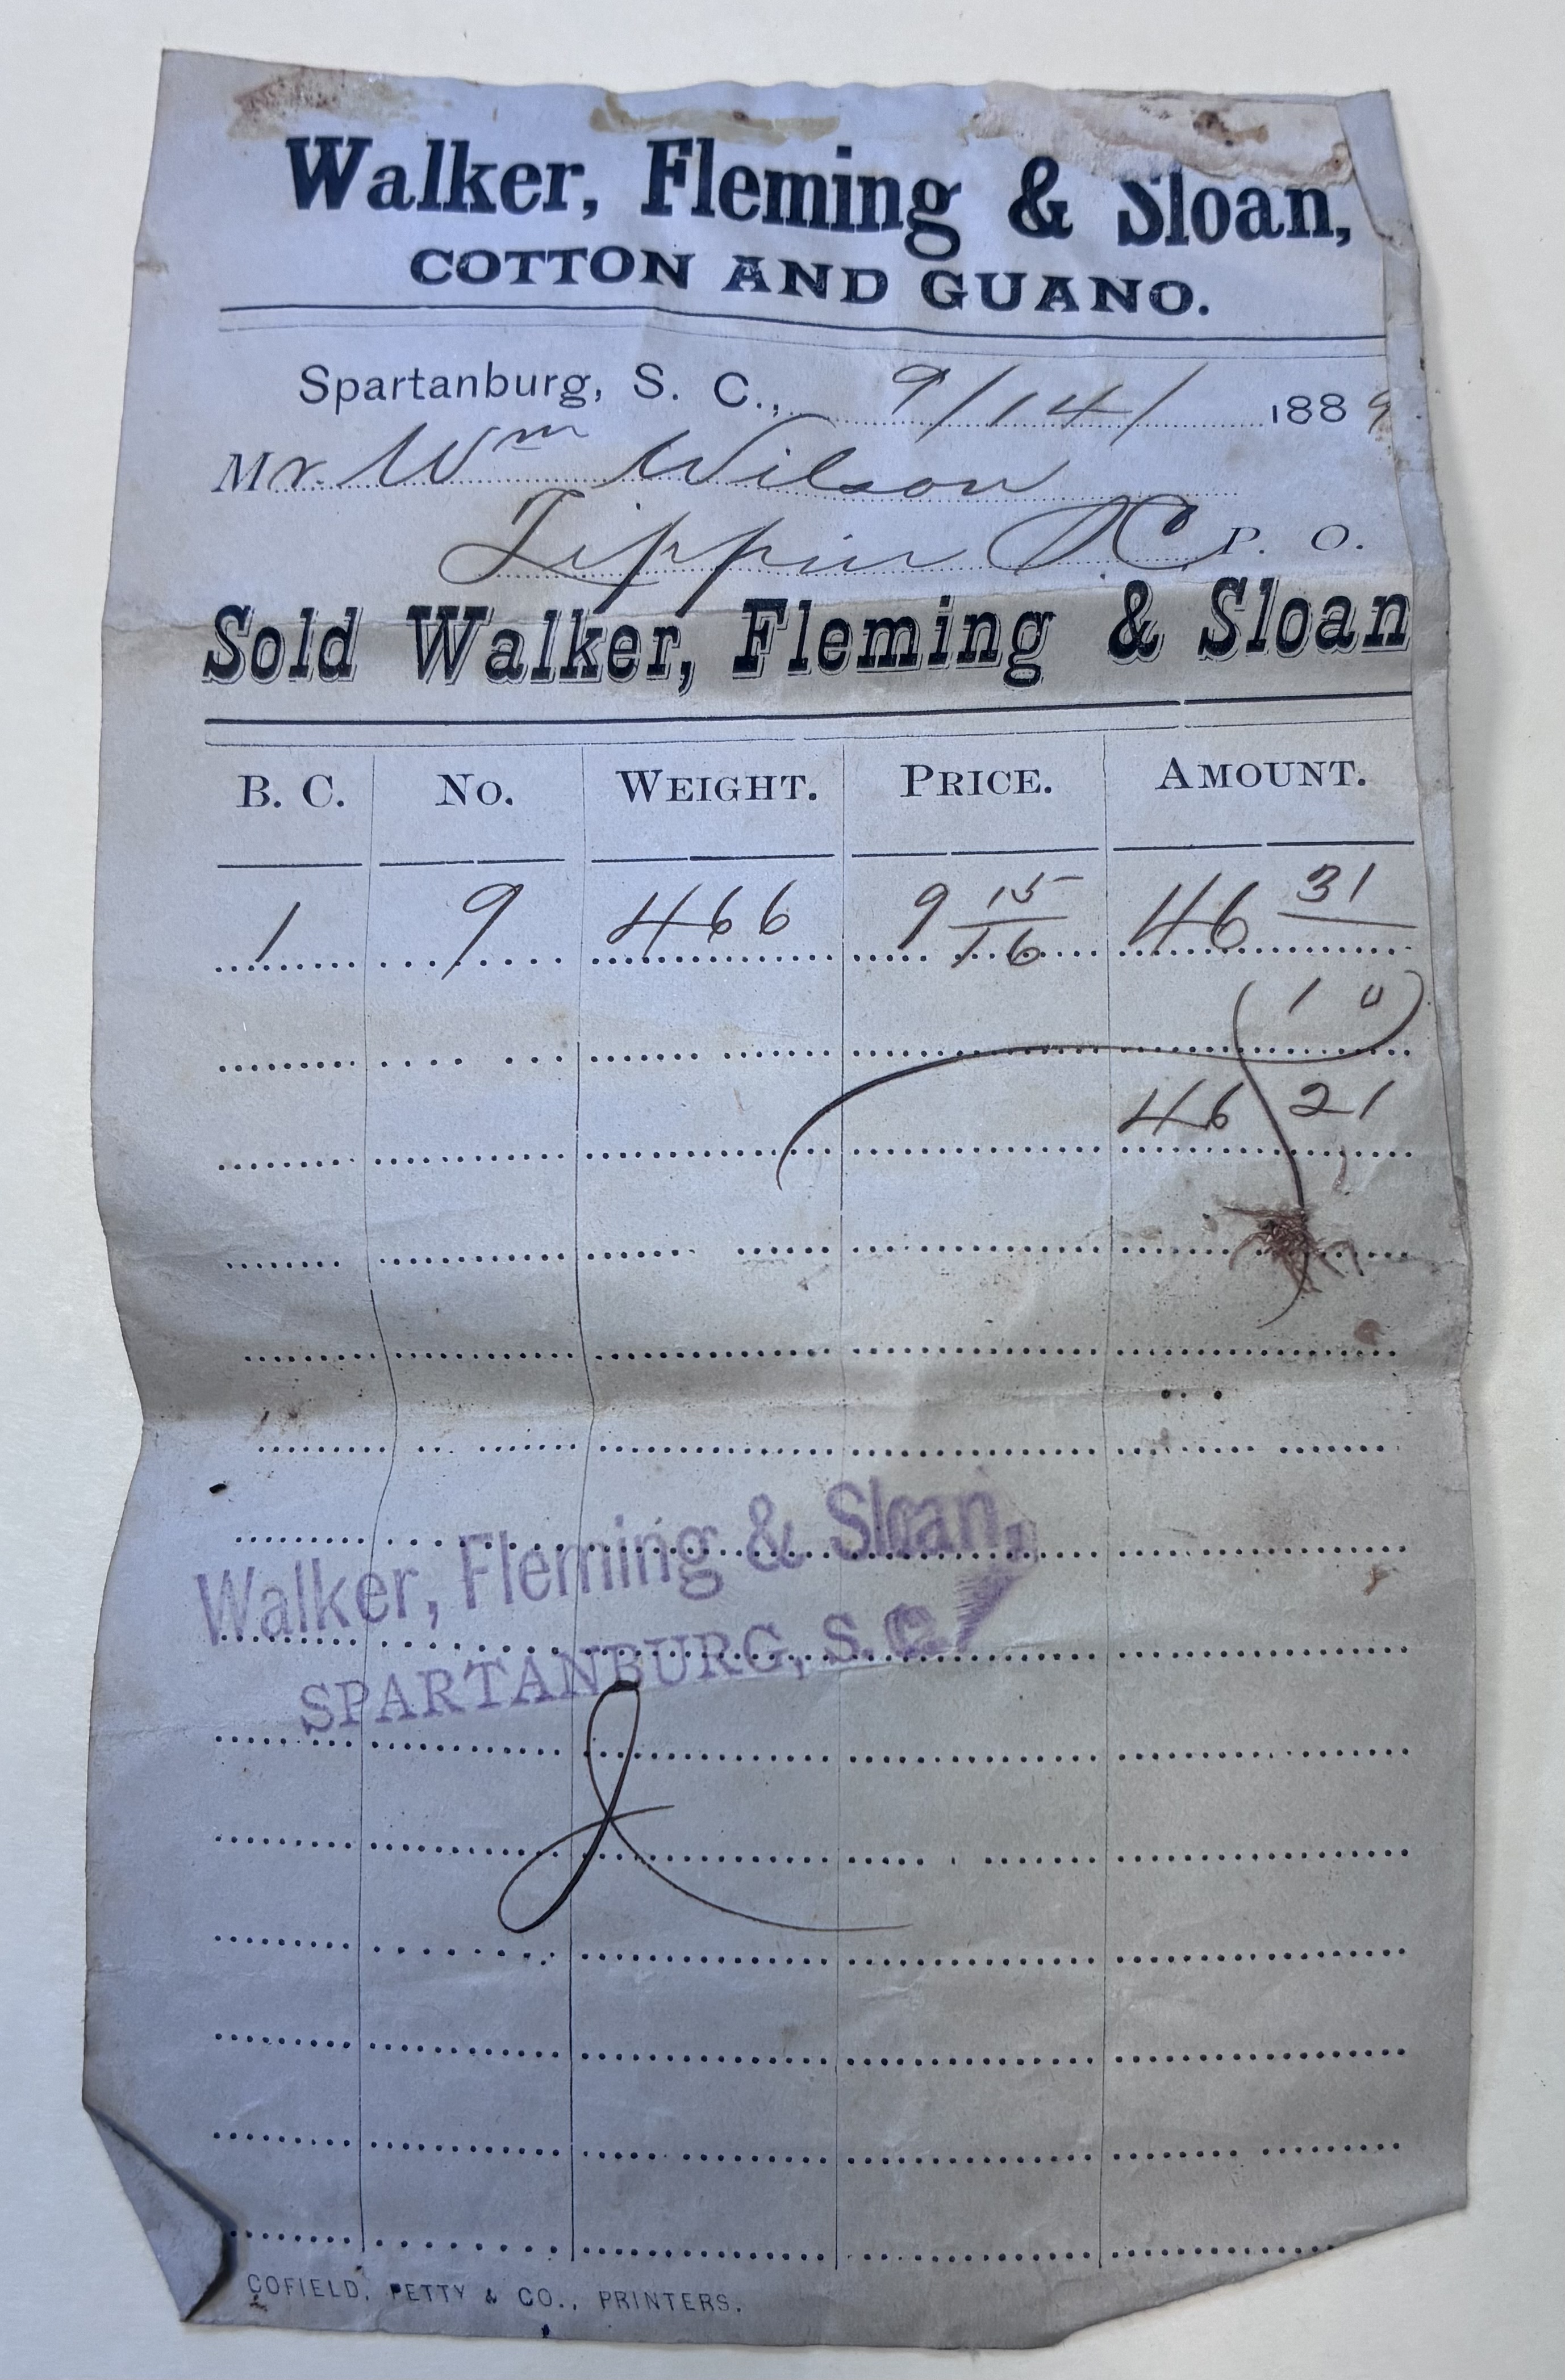 Walker, Fleming & Sloan,
COTTON AND GUANO.
Spartanburg, S. C., 9/14/ 1889
Mr. Wm Wilson
P. O.
Sold Walker, Fleming & Sloan
B. C. No. WEIGHT. PRICE. AMOUNT.
1 9 466 9 15/16 46 31
10
46 21
Walker, Fleming & Sloan,
SPARTANBURG, S. C.
COFIELD, PETTY & CO., PRINTERS.